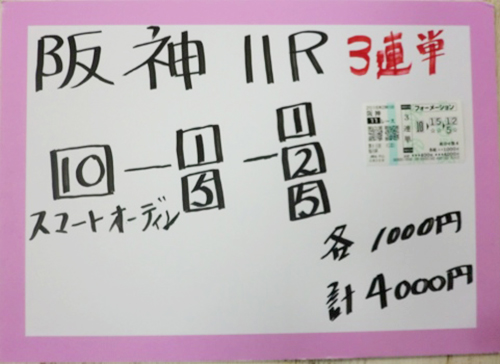 阪神 11R 3連単
フォーメーション
1
10 — 1 — 2
5 5
スマートオーディン
各 1000円
計 4000円